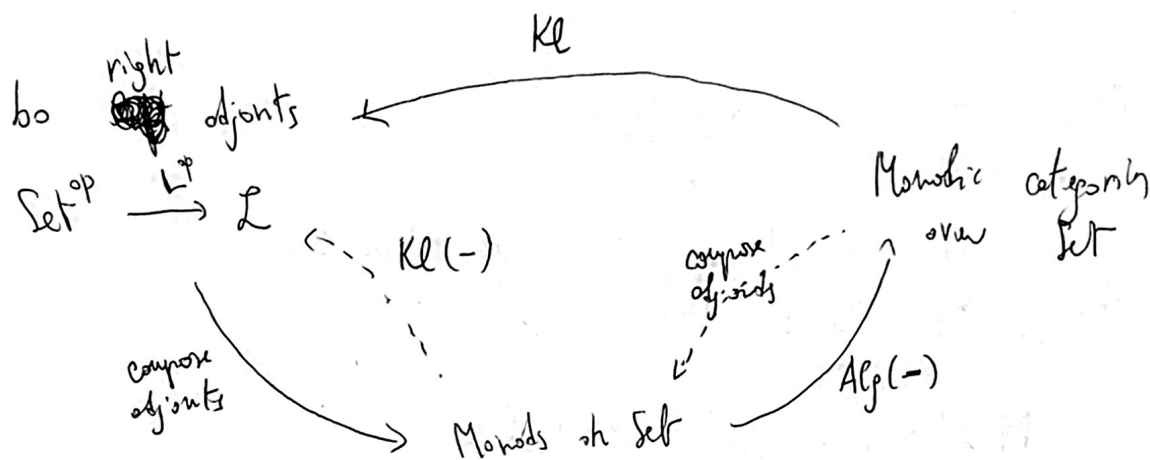 Kl
right
bo adjonts
L^op
Set^op → L
Monadic categories
over Set
Kl (-)
compose
adjoids
compose
adjonts
Alg(-)
Monads on Set